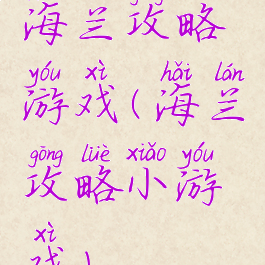 海兰攻略
yóu xì hǎi lán
游戏(海兰
gōng lüè xiǎo yóu
攻略小游
xì
戏)